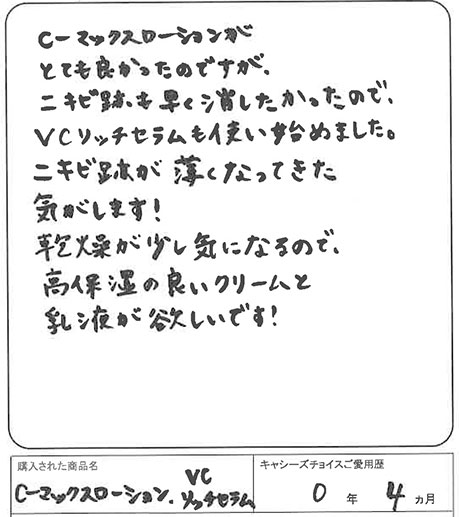 Cーマックスローションが
とても良かったのですが、
ニキビ跡も早く消したかったので、
VCリッチセラムも使い始めました。
ニキビ跡が薄くなってきた
気がします!
乾燥が少し気になるので、
高保湿の良いクリームと
乳液が欲しいです!
購入された商品名
キャシーズチョイスご愛用歴
Cーマックスローション、VCリッチセラム
0年4ヵ月